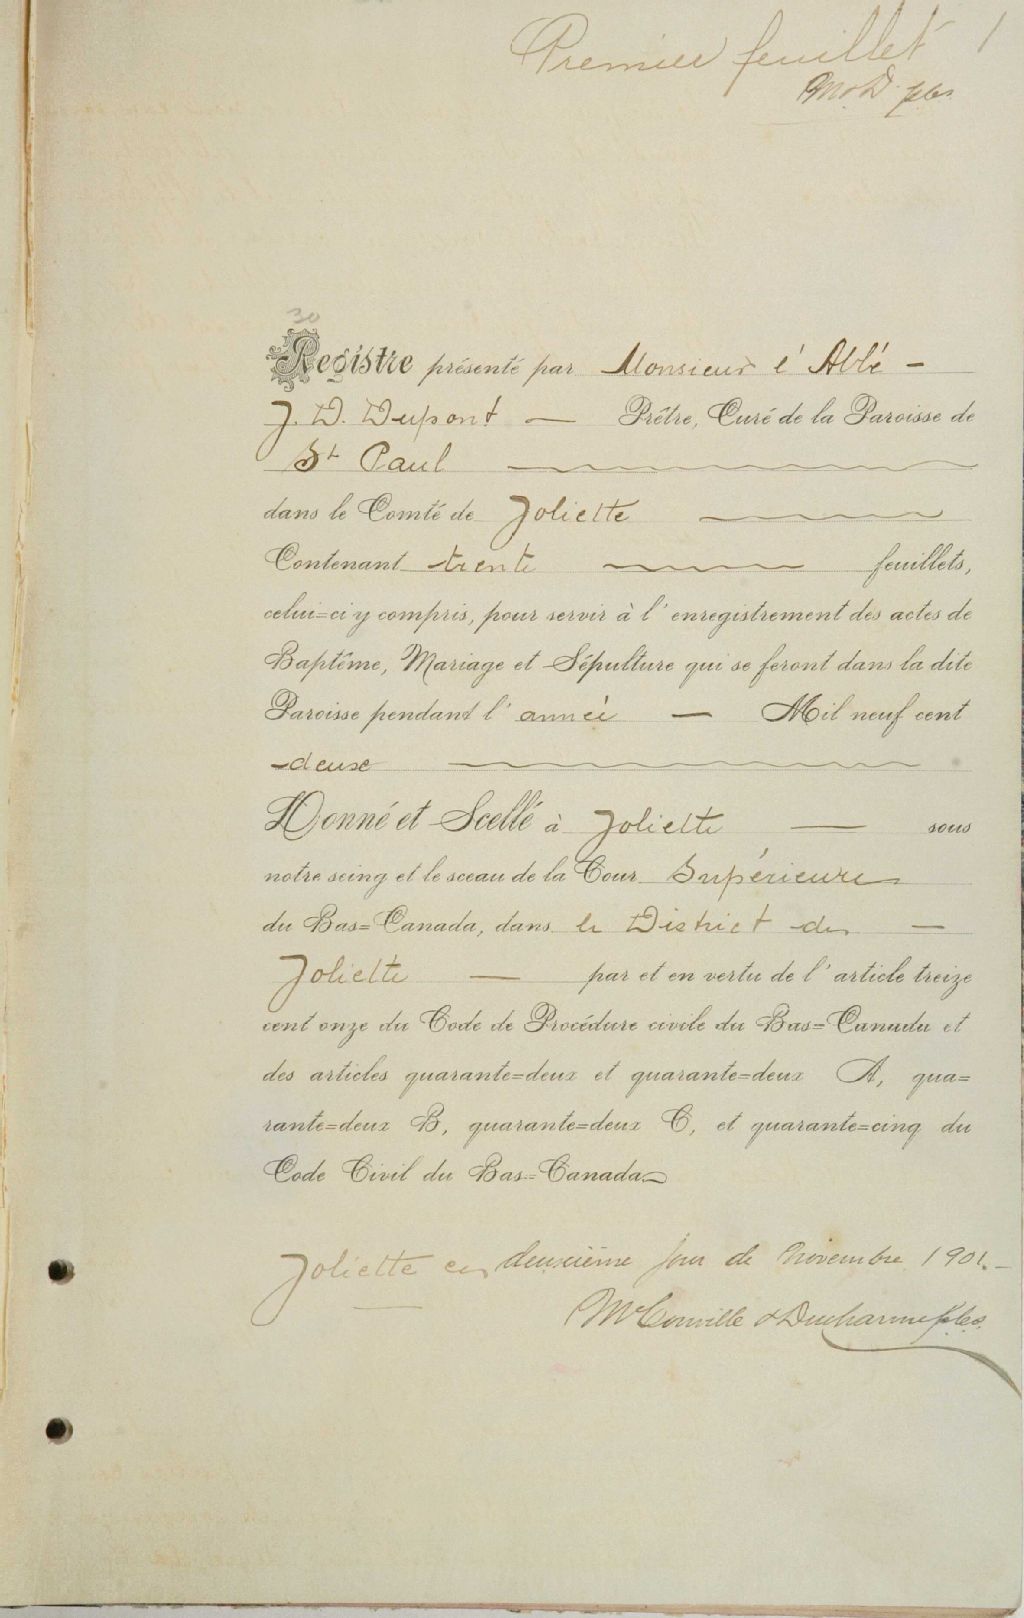 Premier feuillet 1
McD. pcs
30
Registre présenté par Monsieur l'Abbé –
J. D. Dupont — Prêtre, Curé de la Paroisse de
St Paul
dans le Comté de Joliette
Contenant trente feuillets,
celui=ci y compris, pour servir à l'enregistrement des actes de
Baptême, Mariage et Sépulture qui se feront dans la dite
Paroisse pendant l'année — Mil neuf cent
deux
Donné et Scellé à Joliette — sous
notre seing et le sceau de la Cour Supérieure
du Bas=Canada, dans le District de —
Joliette — par et en vertu de l'article treize
cent onze du Code de Procédure civile du Bas=Canada et
des articles quarante=deux et quarante=deux A, qua=
rante=deux B, quarante=deux C, et quarante=cinq du
Code Civil du Bas=Canada
Joliette ce deuxième jour de Novembre 1901. –
McConville & Ducharme p.c.s.